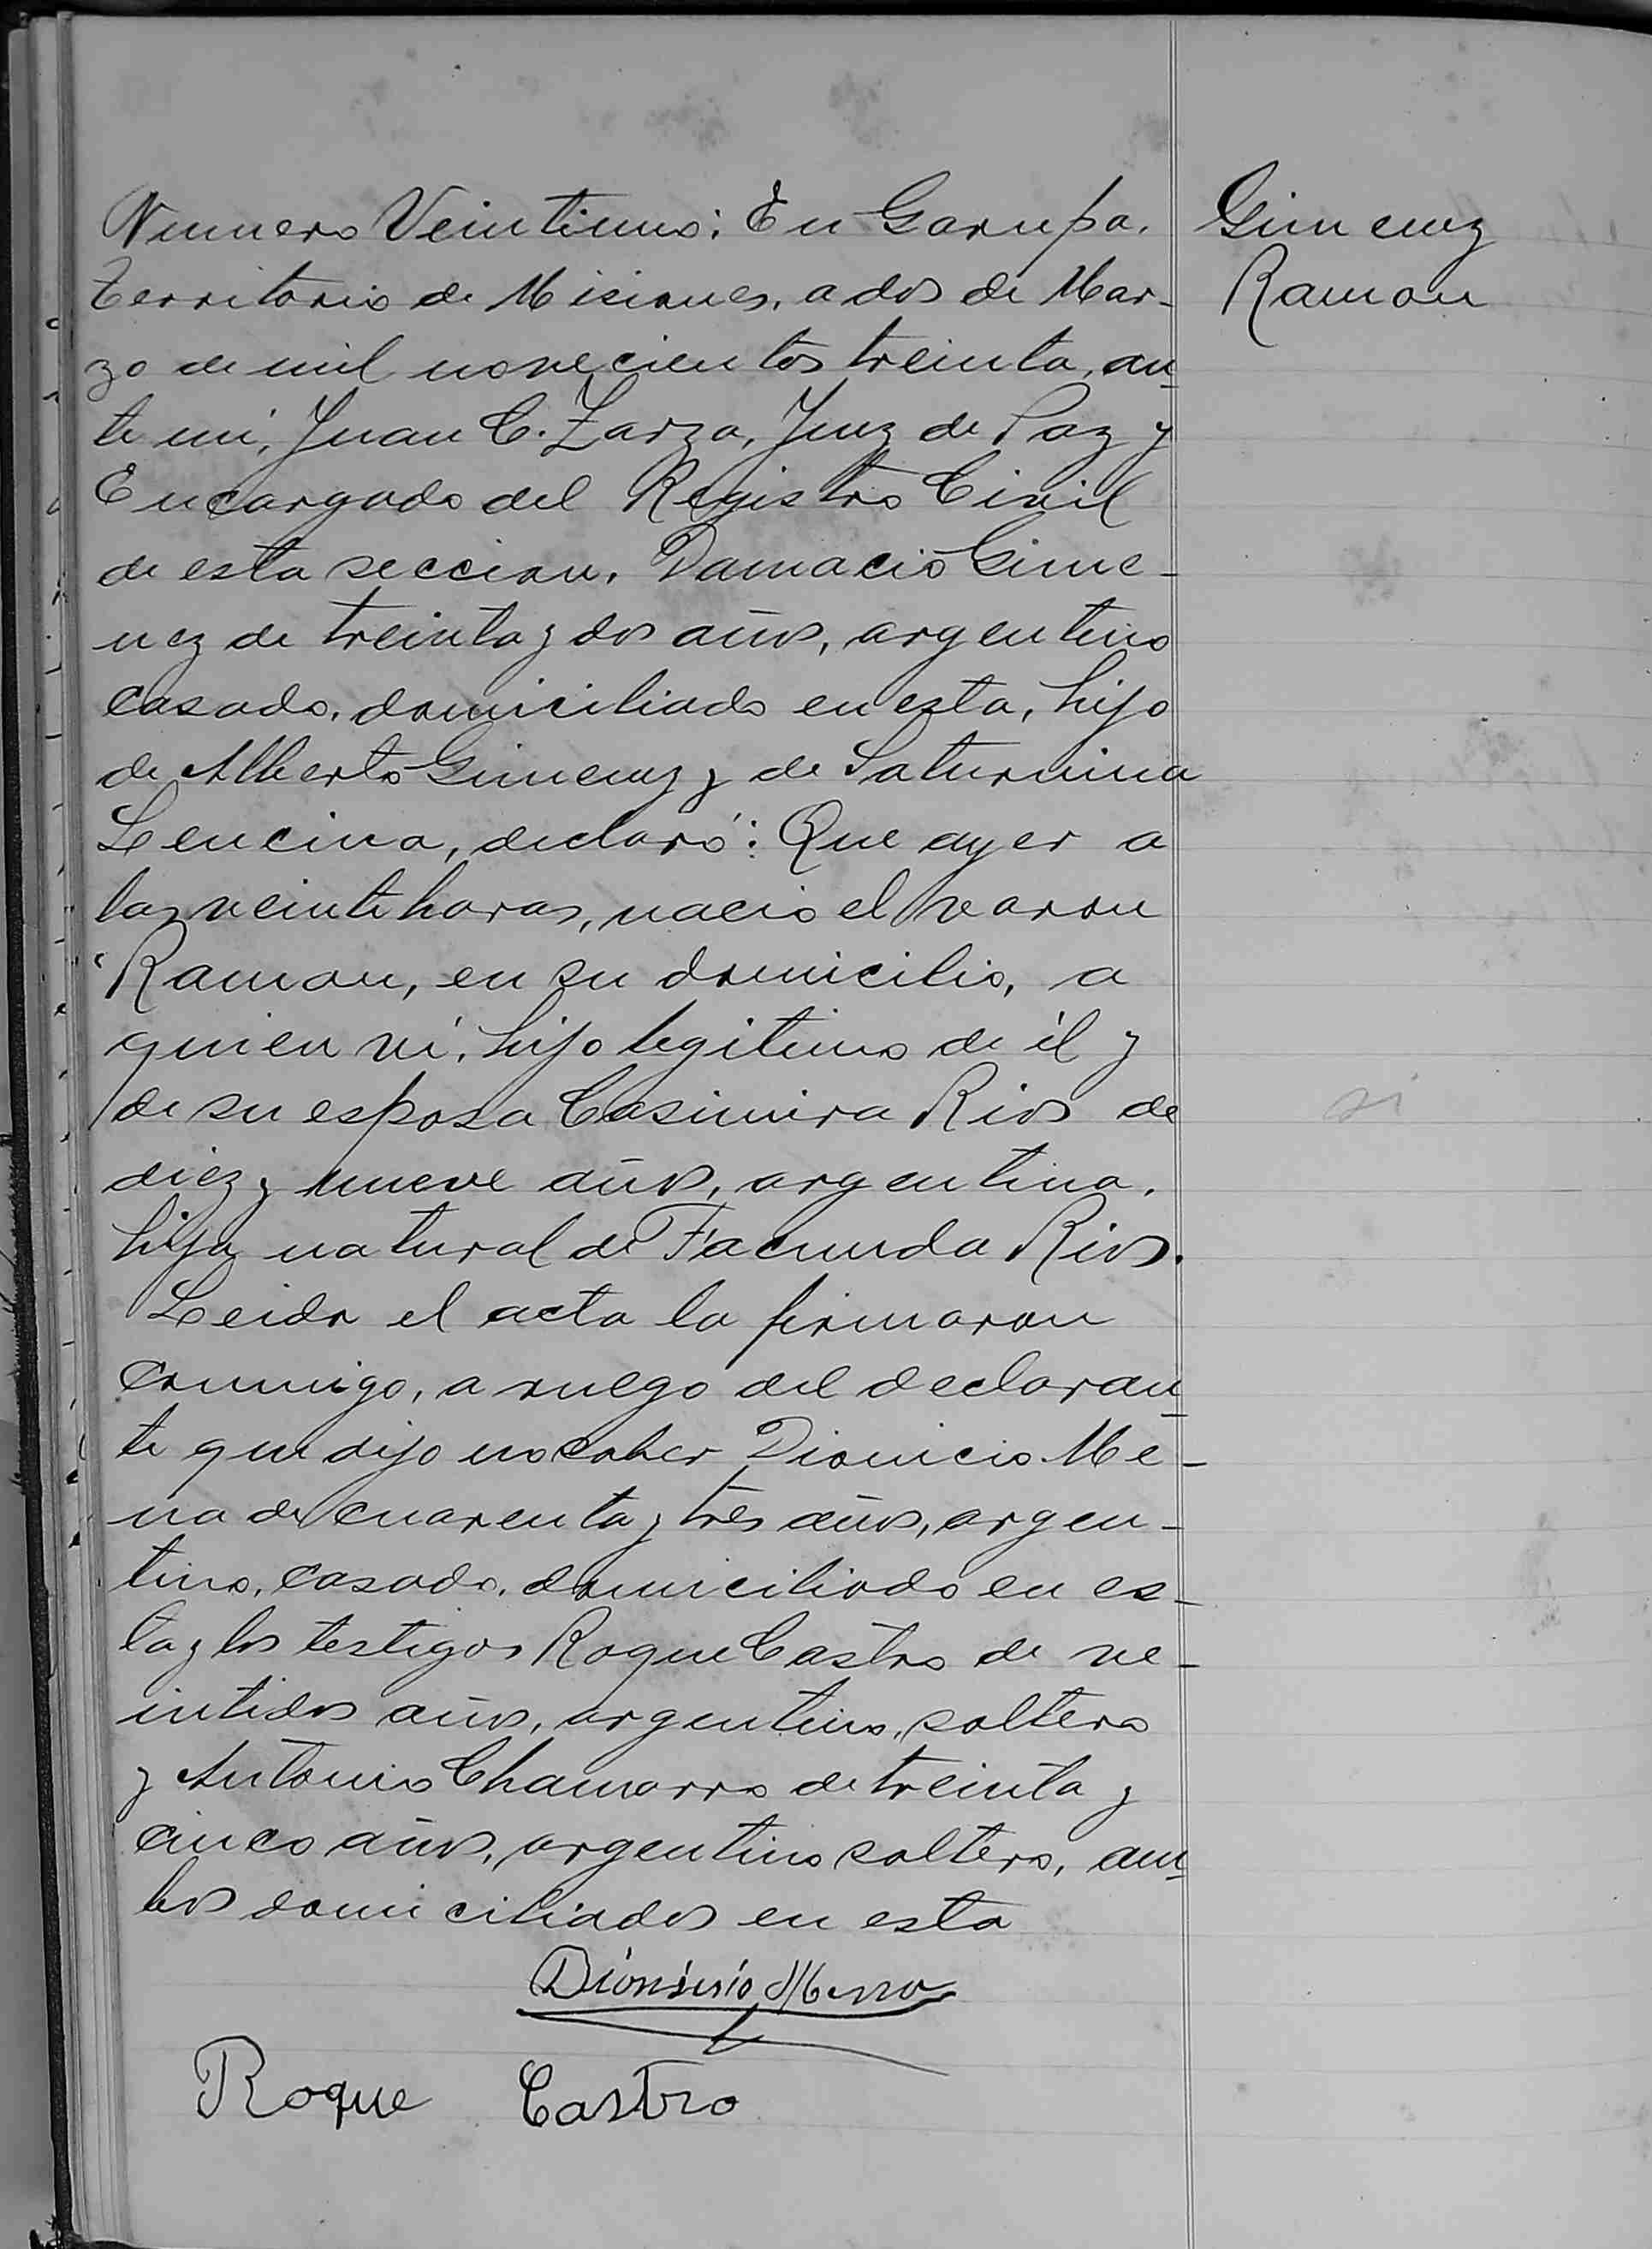 Numero Veintiuno: En Garupa,
Territorio de Misiones, a dos de Mar-
zo de mil novecientos treinta, an-
te mi, Juan C. Zarza, Juez de Paz y
Encargado del Registro Civil
de esta seccion, Damacio Gime-
nez de treinta y dos años, argentino
casado, domiciliado en esta, hijo
de Alberto Gimenez y de Saturnina
Lencina, declaró: Que ayer a
las veinte horas, nacio el varon
Ramon, en su domicilio, a
quien ví, hijo legitimo de él y
de su esposa Casimira Rios de
diez y nueve años, argentina,
hija natural de Facunda Rios.
Leida el acta la firmaron
conmigo, a ruego del declaran-
te que dijo no saber Dionicio Me-
na de cuarenta y tres años, argen-
tino, casado, domiciliado en es-
ta y los testigos Roque Castro de ve-
intidos años, argentino, soltero
y Antonio Chamorro de treinta y
cinco años, argentino soltero, am-
bos domiciliados en esta
Dionisio Mena
Roque Castro
Gimenez
Ramon
si